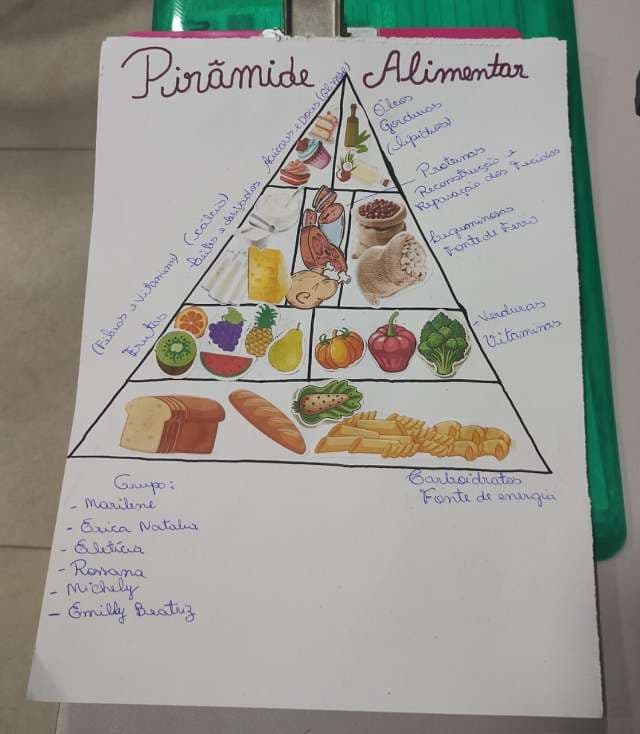 Pirâmide Alimentar
Açúcares e Doces
Óleos
Gorduras
(lipídios)
Proteínas
Reconstrução e
Reparação dos Tecidos
(cálcio)
Leites e derivados
Leguminosas
Fonte de Ferro
(Fibras e Vitaminas)
Frutas
-Verduras
Vitaminas
Carboidratos
Fonte de energia
Grupo:
- Marilene
- Érica Natalia
- Rossana
- Michely
- Emilly Beatriz